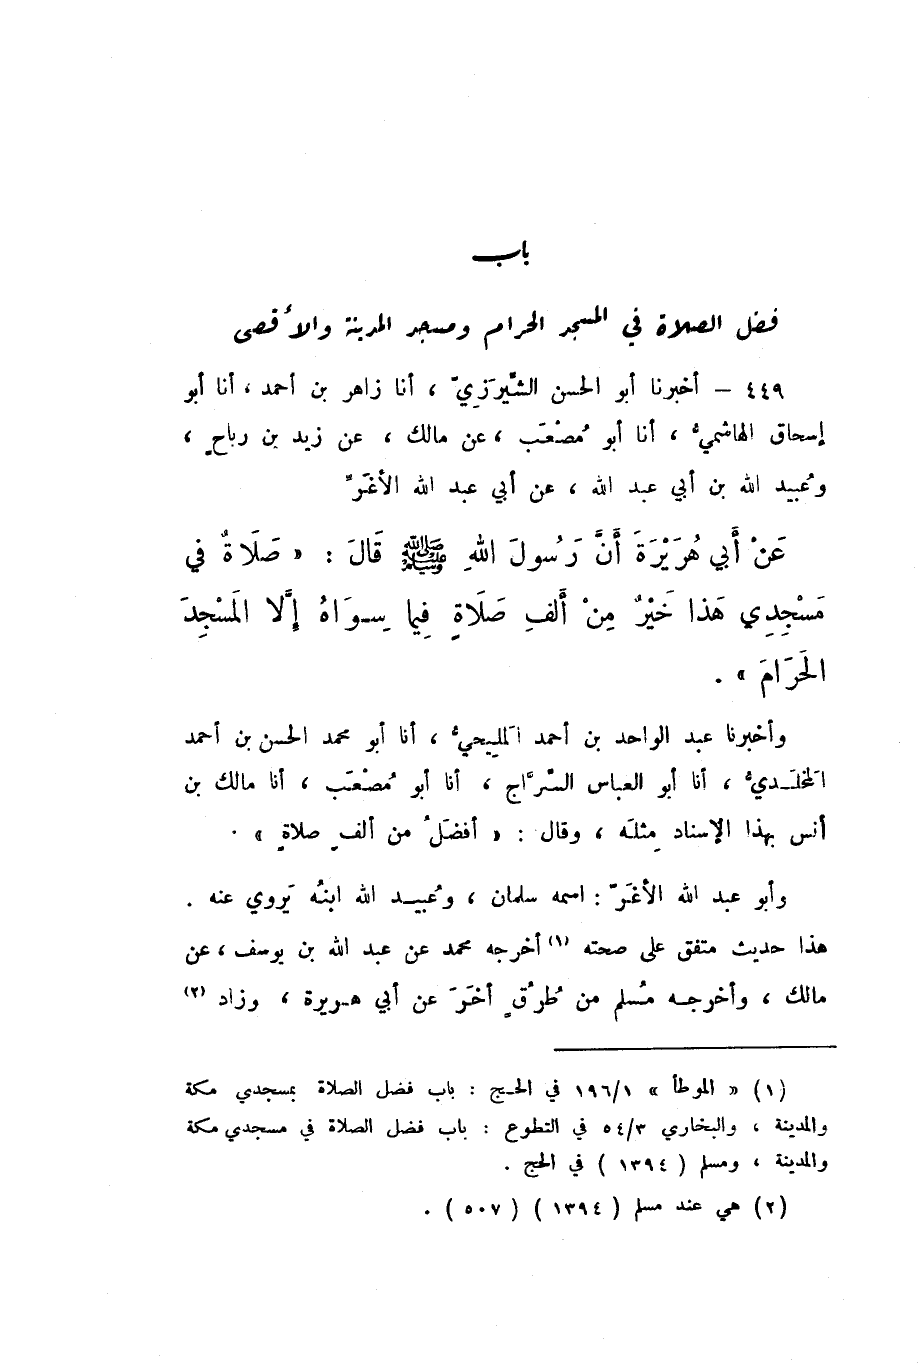 باب
فضل الصلاة في المسجد الحرام ومسجد المدينة والأقصى
٤٤٩ – أخبرنا أبو الحسن الشّيرَزِيّ ، أنا زاهر بن أحمد ، أنا أبو
إسحاق الهاشميُّ ، أنا أبو مُصْعَب ، عن مالك ، عن زيد بن رباحٍ ،
وعُبيد الله بن أبي عبد الله ، عن أبي عبد الله الأغَرِّ
عَنْ أَبي هُرَيْرَةَ أَنَّ رَسُولَ اللهِ ﷺ قَالَ : « صَلَاةٌ في
مَسْجِدِي هَذا خَيْرٌ مِنْ أَلفِ صَلَاةٍ فِيما سِـوَاهُ إِلَّا المَسْجِدَ
الحَرَامَ » .
وأخبرنا عبد الواحد بن أحمد المَلِيحيُّ ، أنا أبو محمد الحسن بن أحمد
المَخلَـديُّ ، أنا أبو العباس السَّرَّاج ، أنا أبو مُصْعَب ، أنا مالك بن
أنس بهذا الإسناد مِثلَه ، وقال : « أفضَلُ من ألفِ صلاةٍ » .
وأبو عبد الله الأغَرّ : اسمه سلمان ، وعُبيـد الله ابنُه يَروي عنه .
هذا حديث متفق على صحته (١) أخرجه محمد عن عبد الله بن يوسف ، عن
مالك ، وأخرجـه مُسلم من طرُقٍ أخَرَ عن أبي هـريرة ، وزاد (٢)
(١) « الموطأ » ١٩٦/١ في الحـج : باب فضل الصلاة بمسجدي مكة
والمدينة ، والبخاري ٥٤/٣ في التطوع : باب فضل الصلاة في مسجدي مكة
والمدينة ، ومسلم ( ١٣٩٤ ) في الحج .
(٢) هي عند مسلم ( ١٣٩٤ ) ( ٥٠٧ ) .